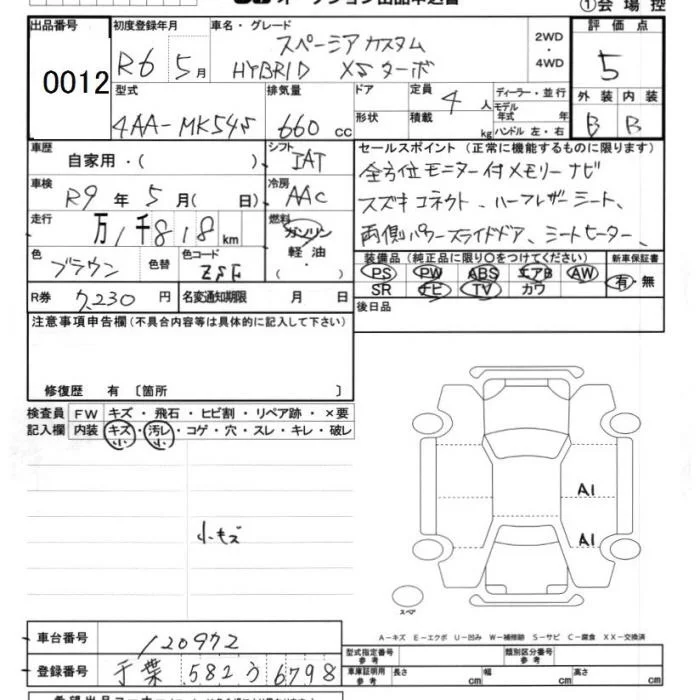 ①会場控
出品番号 初度登録年月 車名・グレード 評価点
0012 R6 5月 スペーシア カスタム 2WD・4WD 5
HYBRID XSターボ
型式 排気量 ドア 定員 4人 ディーラー・並行 外装 内装
4AA-MK54S 660cc 形状 積載 kg モデル年式 年 ハンドル 左・右 B B
車歴 自家用・( ) シフト IAT セールスポイント(正常に機能するものに限ります)
車検 R9年5月( 日) 冷房 AAC 全方位モニター付メモリーナビ
スズキコネクト、ハーフレザーシート、
走行 万1千818km 燃料 ガソリン 軽油 両側パワースライドドア、シートヒーター、
色 ブラウン 色替 色コード 装備品(純正品に限り○をつけてください) 新車保証書
PS PW ABS エアB AW 有・無
SR ナビ TV カワ
R券 7,230円 名変通知期限 月 日 後日品
注意事項申告欄(不具合内容等は具体的に記入して下さい)
修復歴 有〔箇所 〕
検査員 FW キズ・飛石・ヒビ割・リペア跡・×要
記入欄 内装 キズ・汚レ・コゲ・穴・スレ・キレ・破レ
小 小
小キズ
A1
A1
スペア
A-キズ E-エクボ U-凹み W-補修跡 S-サビ C-腐食 XX-交換済
車台番号 120972 型式指定番号 参考 類別区分番号 参考
登録番号 千葉 582 う 6798 車庫証明用 参考 長さ 幅 高さ